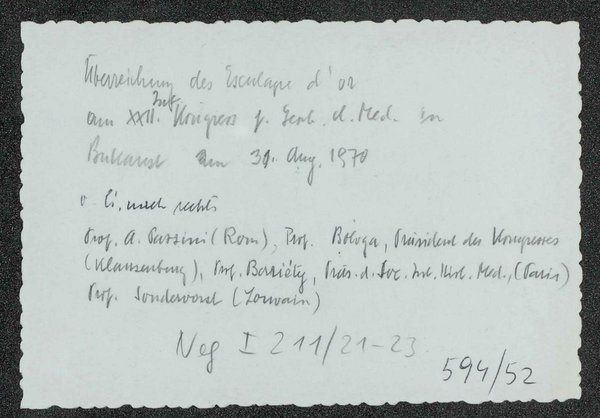 Überreichung des Esculape d'or
am XXII. Int. Kongress f. Gesch. d. Med. in
Bukarest am 31. Aug. 1970
v. li. nach rechts
Prof. A. Pazzini (Rom), Prof. Bologa, Präsident des Kongresses
(Klausenburg), Prof. Bariéty, Präs. d. Soc. Int. Hist. Med., (Paris)
Prof. Sondervorst (Louvain)
Neg I 211/21-23
594/52